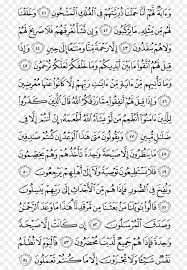 وَءَايَةٌ لَّهُمْ أَنَّا حَمَلْنَا ذُرِّيَّتَهُمْ فِي ٱلْفُلْكِ ٱلْمَشْحُونِ ٤١ وَخَلَقْنَا
لَهُم مِّن مِّثْلِهِۦ مَا يَرْكَبُونَ ٤٢ وَإِن نَّشَأْ نُغْرِقْهُمْ فَلَا صَرِيخَ لَهُمْ
وَلَا هُمْ يُنقَذُونَ ٤٣ إِلَّا رَحْمَةً مِّنَّا وَمَتَٰعًا إِلَىٰ حِينٍ ٤٤ وَإِذَا
قِيلَ لَهُمُ ٱتَّقُوا۟ مَا بَيْنَ أَيْدِيكُمْ وَمَا خَلْفَكُمْ لَعَلَّكُمْ تُرْحَمُونَ ٤٥
وَمَا تَأْتِيهِم مِّنْ ءَايَةٍ مِّنْ ءَايَٰتِ رَبِّهِمْ إِلَّا كَانُوا۟ عَنْهَا مُعْرِضِينَ
٤٦ وَإِذَا قِيلَ لَهُمْ أَنفِقُوا۟ مِمَّا رَزَقَكُمُ ٱللَّهُ قَالَ ٱلَّذِينَ كَفَرُوا۟
لِلَّذِينَ ءَامَنُوٓا۟ أَنُطْعِمُ مَن لَّوْ يَشَآءُ ٱللَّهُ أَطْعَمَهُۥٓ إِنْ أَنتُمْ إِلَّا فِي
ضَلَٰلٍ مُّبِينٍ ٤٧ وَيَقُولُونَ مَتَىٰ هَٰذَا ٱلْوَعْدُ إِن كُنتُمْ صَٰدِقِينَ
٤٨ مَا يَنظُرُونَ إِلَّا صَيْحَةً وَٰحِدَةً تَأْخُذُهُمْ وَهُمْ يَخِصِّمُونَ
٤٩ فَلَا يَسْتَطِيعُونَ تَوْصِيَةً وَلَآ إِلَىٰٓ أَهْلِهِمْ يَرْجِعُونَ ٥٠
وَنُفِخَ فِي ٱلصُّورِ فَإِذَا هُم مِّنَ ٱلْأَجْدَاثِ إِلَىٰ رَبِّهِمْ يَنسِلُونَ
٥١ قَالُوا۟ يَٰوَيْلَنَا مَنۢ بَعَثَنَا مِن مَّرْقَدِنَا هَٰذَا مَا وَعَدَ ٱلرَّحْمَٰنُ
وَصَدَقَ ٱلْمُرْسَلُونَ ٥٢ إِن كَانَتْ إِلَّا صَيْحَةً
وَٰحِدَةً فَإِذَا هُمْ جَمِيعٌ لَّدَيْنَا مُحْضَرُونَ ٥٣ فَٱلْيَوْمَ لَا تُظْلَمُ
نَفْسٌ شَيْـًٔا وَلَا تُجْزَوْنَ إِلَّا مَا كُنتُمْ تَعْمَلُونَ ٥٤